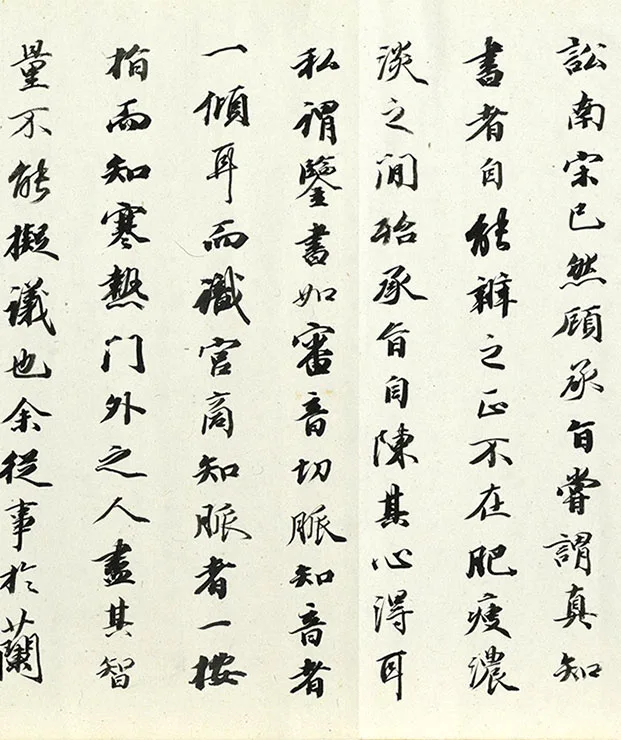 訟南宋已然顧承旨嘗謂真知
書者自能辨之正不在肥瘦濃
淡之間殆承旨自陳其心得耳
私謂鑒書如審音切脈知音者
一傾耳而識宮商知脈者一按
指而知寒熱門外之人盡其智
量不能擬議也余從事於蘭